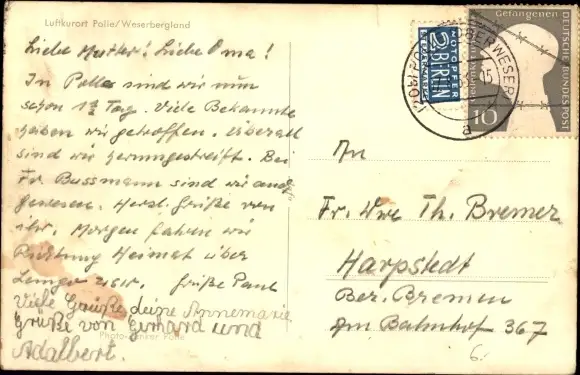 Luftkurort Polle/Weserbergland
Liebe Mutter! Liebe Oma!
In Polle sind wir nun
schon 1½ Tag. Viele Bekannte
haben wir getroffen. Überall
sind wir herumgestreift. Bei
Fr. Bussmann sind wir auch
gewesen. Herzl. Grüße von
ihr. Morgen fahren wir
Richtung Heimat über
Lemgo usw. Grüße Paul
Viele Grüße deine Annemarie
Grüße von Gerhard und
Adalbert.
Polle
NOTOPFER
2 BERLIN
STEUERMARKE
OBERWESER
a
Gefangenen
DEUTSCHE BUNDESPOST
10
An
Fr. Wwe Th. Bremer
Harpstedt
Bez. Bremen
Am Bahnhof 367
6.